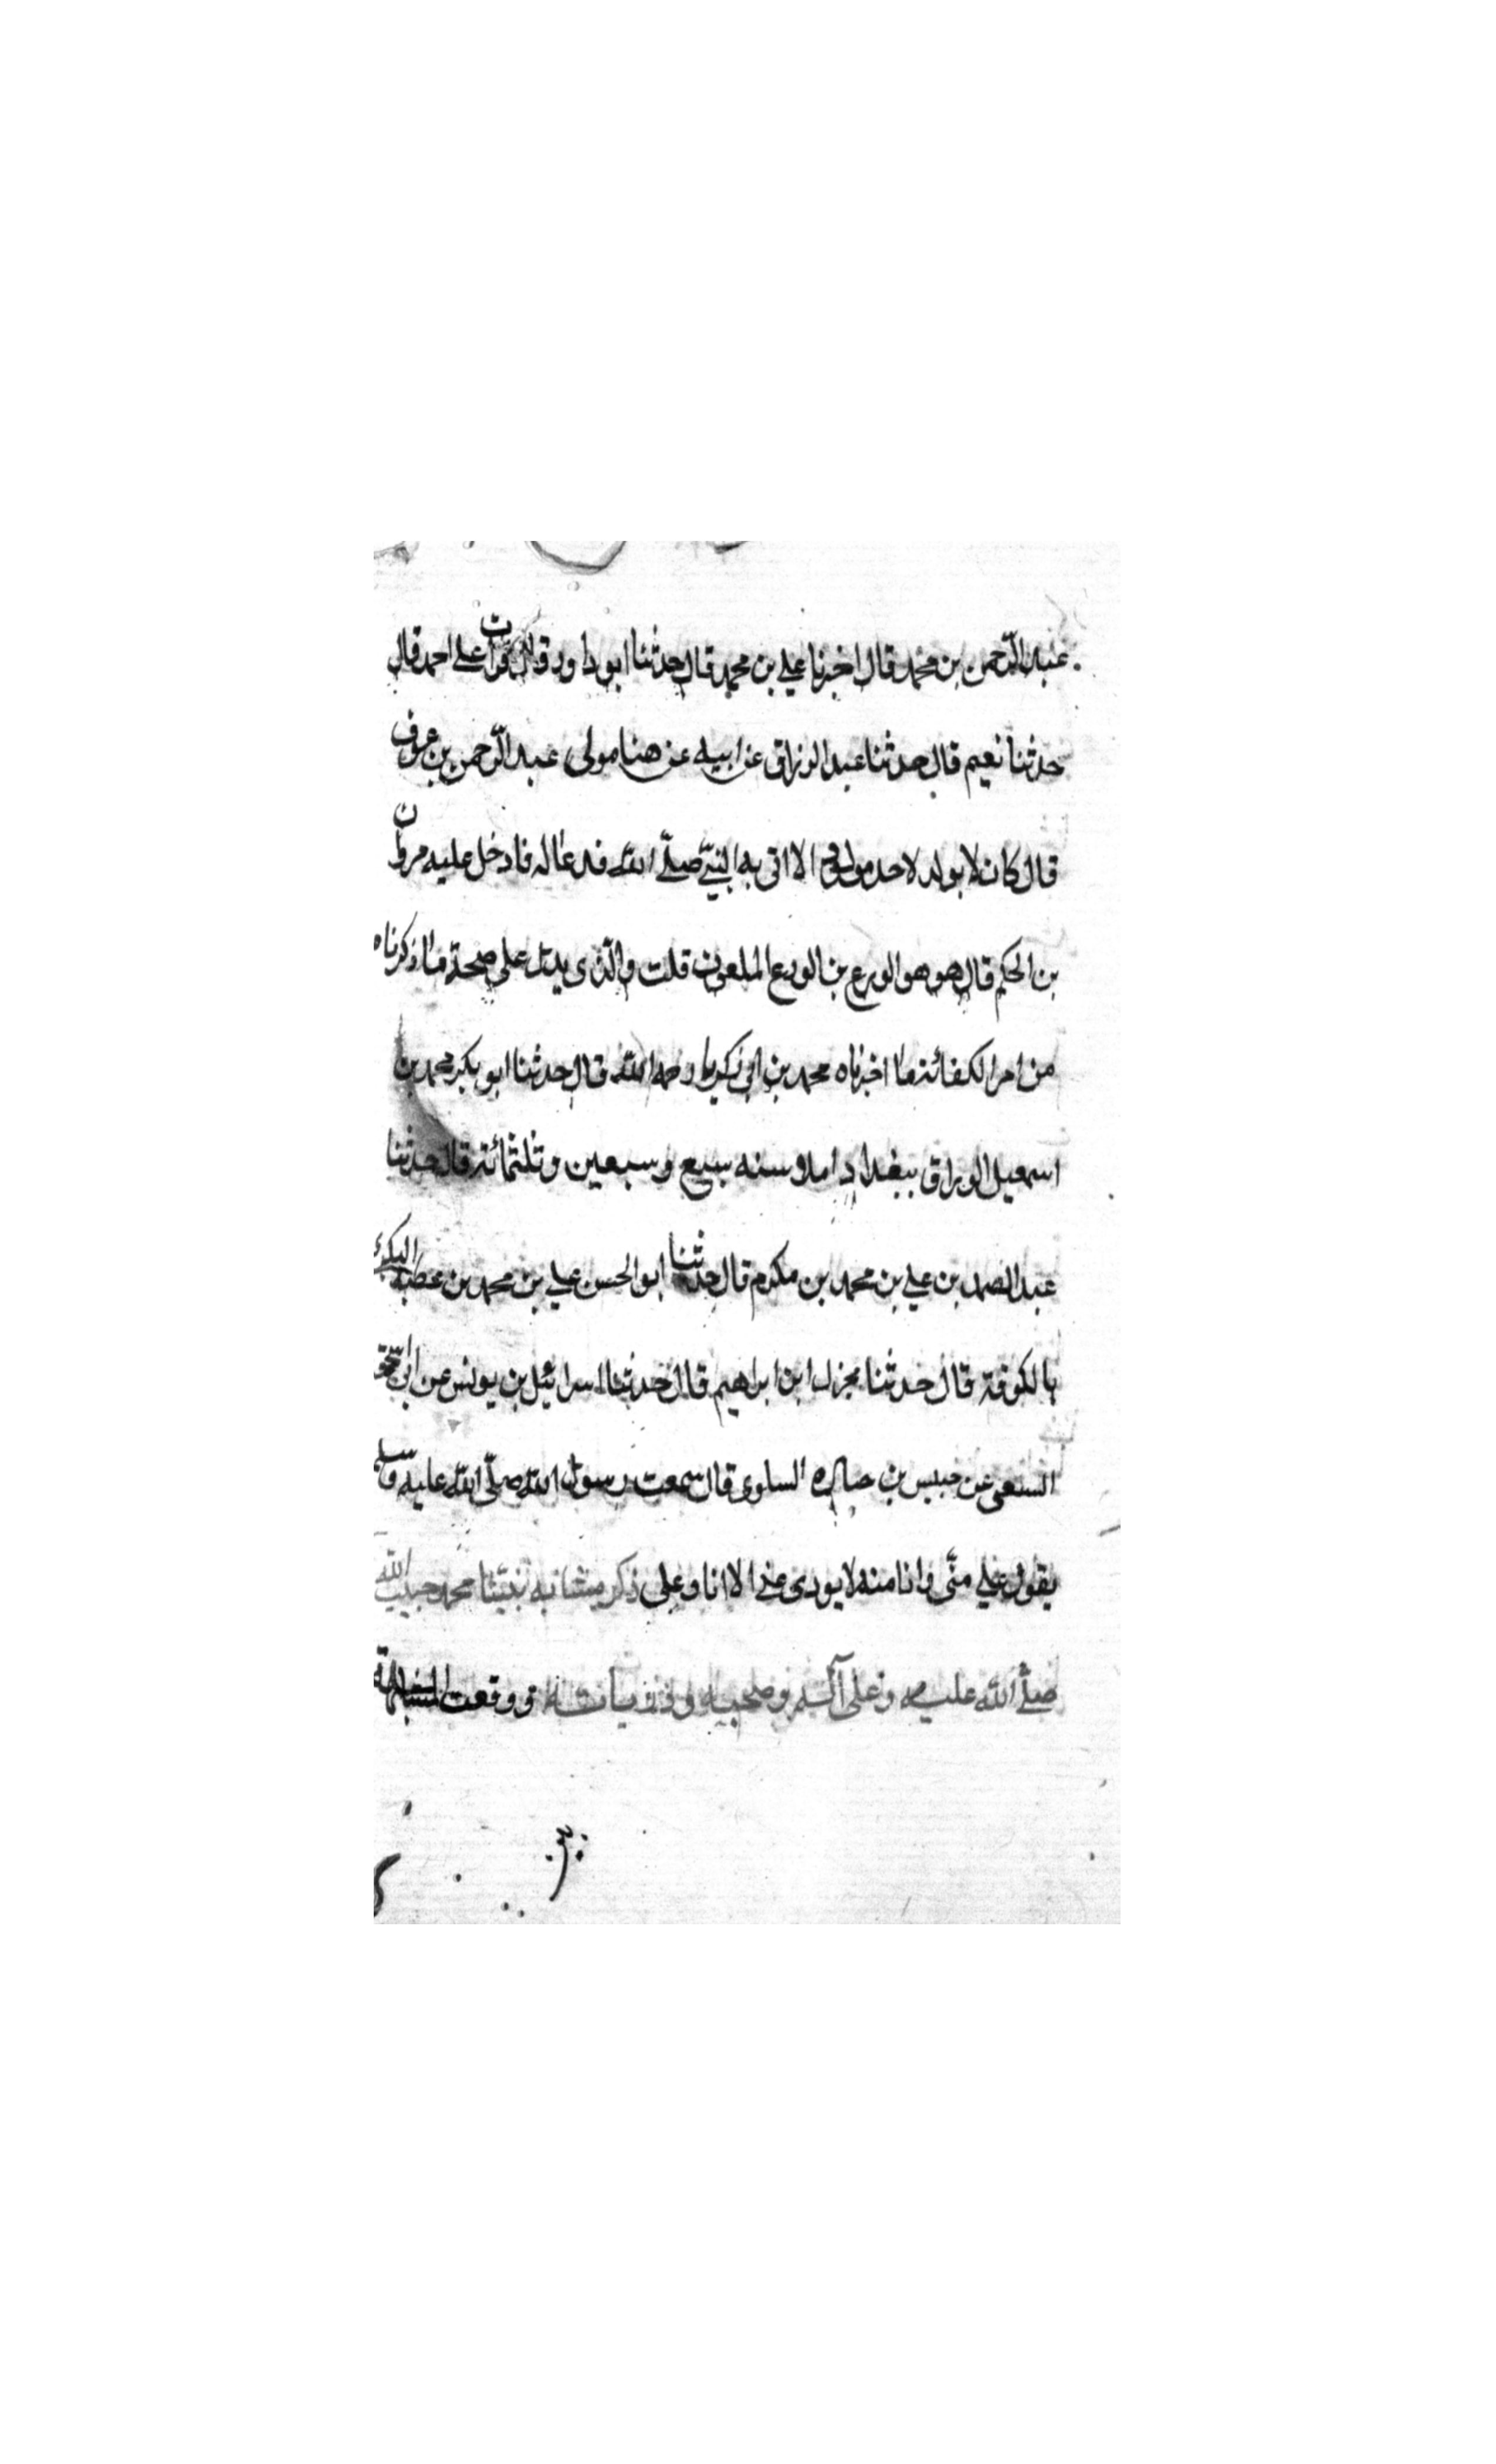 عبد الرّحمن بن محمد قال اخبرنا علي بن محمد قال حدثنا ابو داود قال قرات علي احمد قال
حدثنا نعيم قال حدثنا عبد الرزاق عن ابيه عن هنا مولى عبد الرّحمن بن عوف
قال كان لا يولد لاحد مولود الا اتى به النبيّ صلّى الله فدعا له فادخل عليه مروان
بن الحكم قال هو هو الوزع بن الوزع الملعون قلت والّذى يدّل على صحة ما ذكرناه
من امر الكفائة ما اخبرناه محمد بن ابي زكريا رحمه الله قال حدثنا ابو بكر محمد بن
اسمعيل الوراق ببغداد املا سنه سبع وسبعين وثلثمائة قال حدثنا
عبد الصمد بن علي بن محمد بن مكرم قال حدثنا ابو الحسن علي بن محمد بن عطبه
بالكوفة قال حدثنا ابن ابراهيم قال حدثنا اسرائيل بن يونس عن ابي
عن حبيس بن السلوى قال سمعت رسول الله صلّى الله عليه وسلم
يقول علي منّى وانا منه لا يودى عني الا انا وعلى ذكر مشابه نبيّنا محمد حبيب الله
صلّى الله عليه وعلى آله وصحبه ووقعت المشابهة